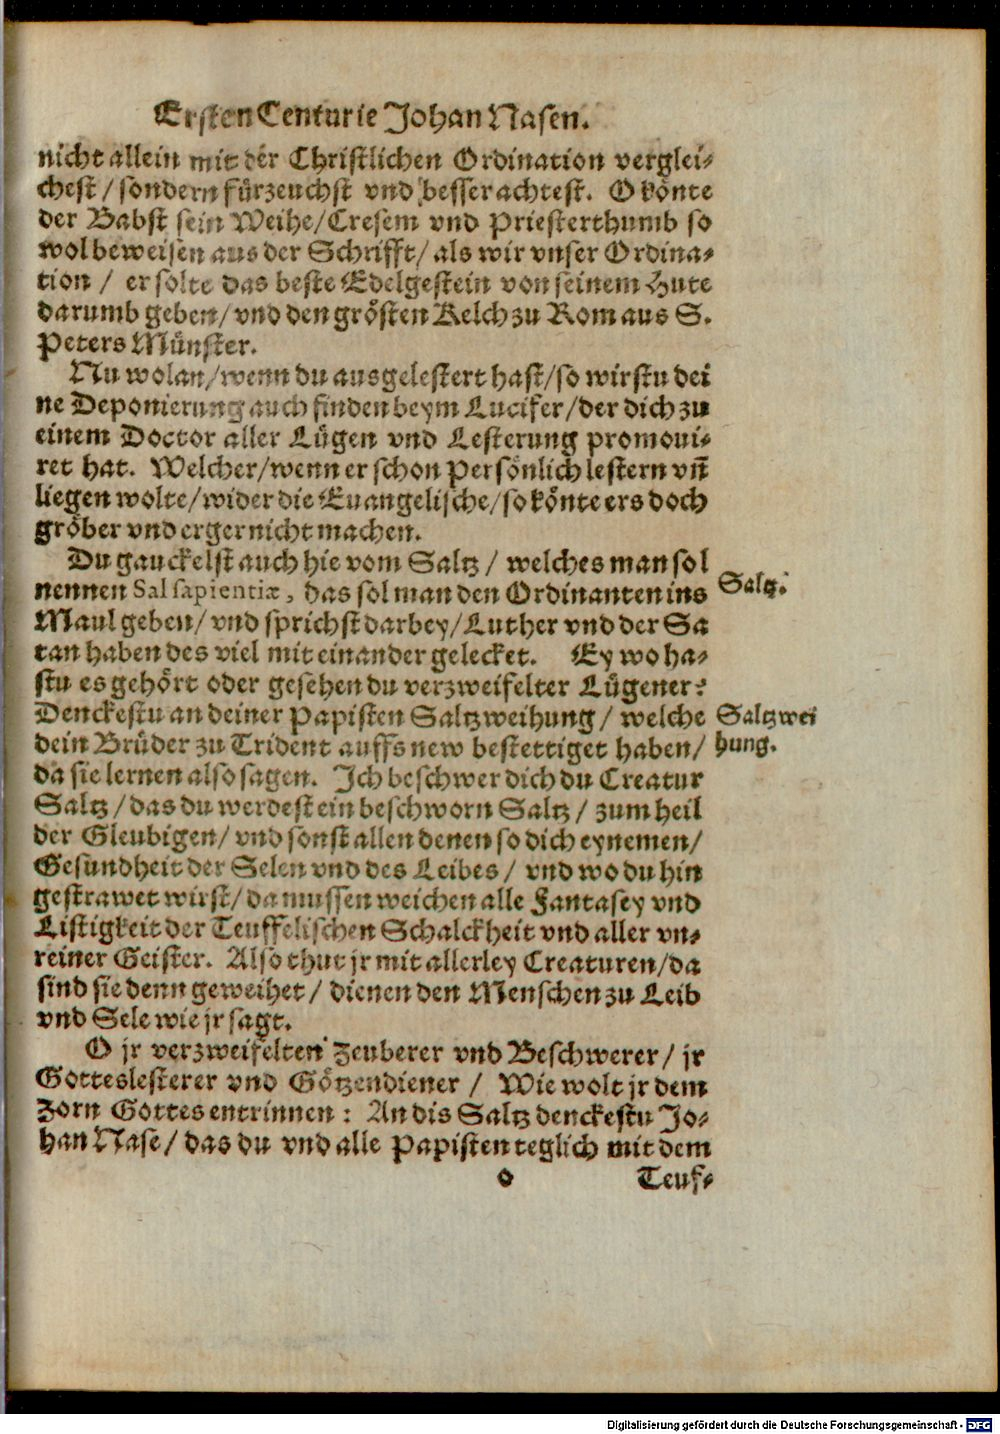 Ersten Centurie Johan Nasen.
nicht allein mit der Christlichen Ordination verglei-
chest / sondern fürzeuchst vnd besser achtest. O könte
der Babst sein Weihe/Cresem vnd Priesterthumb so
wol beweisen aus der Schrifft/ als wir vnser Ordina-
tion / er solte das beste Edelgestein von seinem Hute
darumb geben/ vnd den grösten Kelch zu Rom aus S.
Peters Münster.
Nu wolan/wenn du ausgelestert hast/so wirstu dei
ne Deponierung auch finden beym Lucifer/der dich zu
einem Doctor aller Lügen vnd Lesterung promoui-
ret hat. Welcher/wenn er schon Persönlich lestern vñ
liegen wolte/wider die Euangelische/so könte ers doch
gröber vnd erger nicht machen.
Du gauckelst auch hie vom Saltz / welches man sol
nennen Sal sapientiæ, das sol man den Ordinanten ins
Saltz.
Maul geben/ vnd sprichst darbey/Luther vnd der Sa
tan haben des viel mit einander gelecket. Ey wo ha-
stu es gehört oder gesehen du verzweifelter Lügener?
Denckestu an deiner Papisten Saltzweihung / welche
Saltzwei
dein Brüder zu Trident auffs new bestettiget haben/
hung.
da sie lernen also sagen. Ich beschwer dich du Creatur
Saltz / das du werdest ein beschworn Saltz / zum heil
der Gleubigen/ vnd sonst allen denen so dich eynemen/
Gesundheit der Selen vnd des Leibes / vnd wo du hin
gestrawet wirst/ da mussen weichen alle Fantasey vnd
Listigkeit der Teuffelischen Schalckheit vnd aller vn-
reiner Geister. Also thut jr mit allerley Creaturen/da
sind sie denn geweihet / dienen den Menschen zu Leib
vnd Sele wie jr sagt.
O jr verzweifelten Zeuberer vnd Beschwerer/ jr
Gotteslesterer vnd Götzendiener / Wie wolt jr dem
Zorn Gottes entrinnen: An dis Saltz denckestu Jo-
han Nase/ das du vnd alle Papisten teglich mit dem
o
Teuf-
Digitalisierung gefördert durch die Deutsche Forschungsgemeinschaft - DFG